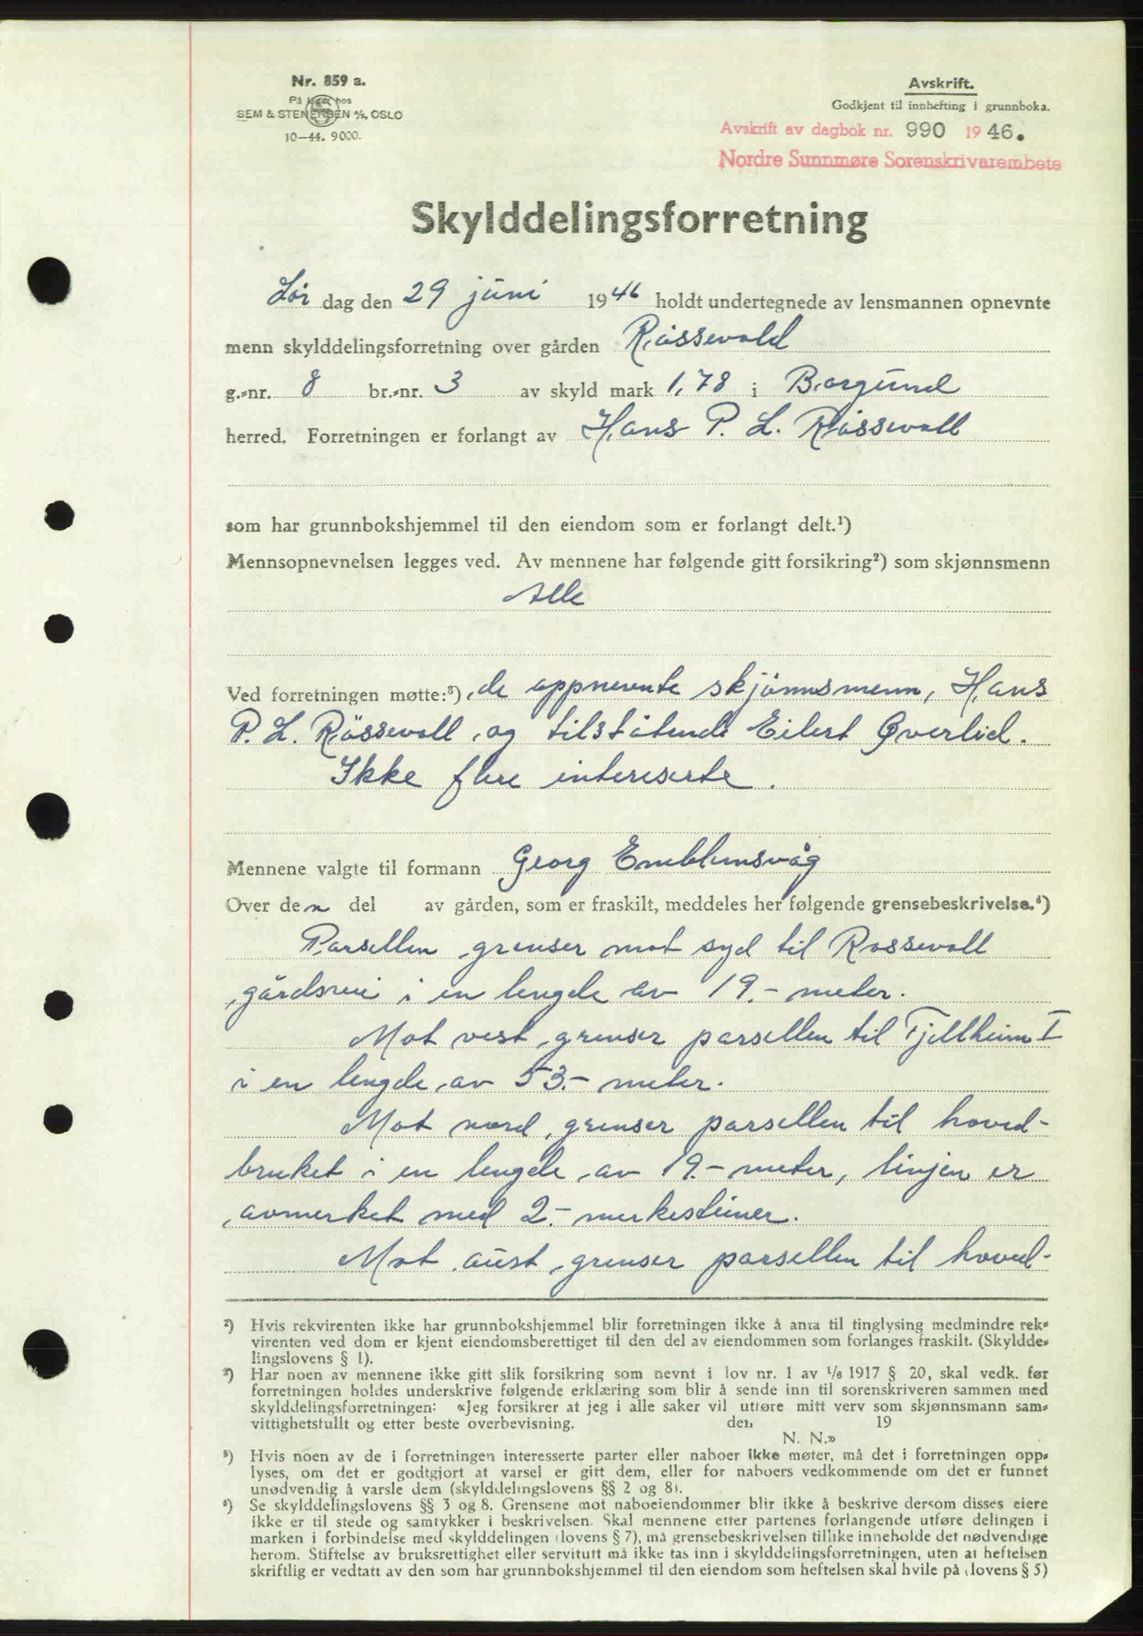 Nr. 859 a.
På lager hos
SEM & STENERSEN A/S, OSLO
10-44. 9000.
Avskrift.
Godkjent til innhefting i grunnboka.
Avskrift av dagbok nr. 990 1946.
Nordre Sunnmøre Sorenskrivarembete
Skylddelingsforretning
Lør dag den 29 juni 1946 holdt undertegnede av lensmannen opnevnte
menn skylddelingsforretning over gården Røssevold
g.-nr. 8 br.-nr. 3 av skyld mark 1,78 i Borgund
herred. Forretningen er forlangt av Hans P. L. Røssevoll
som har grunnbokshjemmel til den eiendom som er forlangt delt.¹)
Mennsopnevnelsen legges ved. Av mennene har følgende gitt forsikring²) som skjønnsmenn
Alle
Ved forretningen møtte:³) de oppnevnte skjönnsmenn, Hans
P. L. Røssevoll og tilstøtende Eilert Øverlid.
Ikke flere intereserte.
Mennene valgte til formann Georg Emblemsvåg
Over den del av gården, som er fraskilt, meddeles her følgende grensebeskrivelse.⁴)
Parsellen grenser mot syd til Rossevoll
gårdsvei i en lengde av 19.- meter.
Mot vest grenser parsellen til Fjellheim I
i en lengde av 53.- meter.
Mot nord grenser parsellen til hoved-
bruket i en lengde av 19.- meter, linjen er
avmerket med 2.- merkesteiner.
Mot aust grenser parsellen til hoved-
²) Hvis rekvirenten ikke har grunnbokshjemmel blir forretningen ikke å anta til tinglysing medmindre rek-
virenten ved dom er kjent eiendomsberettiget til den del av eiendommen som forlanges fraskilt. (Skyldde-
lingslovens § 1).
²) Har noen av mennene ikke gitt slik forsikring som nevnt i lov nr. 1 av 1/6 1917 § 20, skal vedk. før
forretningen holdes underskrive følgende erklæring som blir å sende inn til sorenskriveren sammen med
skylddelingsforretningen: «Jeg forsikrer at jeg i alle saker vil utføre mitt verv som skjønnsmann sam-
vittighetsfullt og etter beste overbevisning. den 19
N. N.»
³) Hvis noen av de i forretningen interesserte parter eller naboer ikke møter, må det i forretningen opp-
lyses, om det er godtgjort at varsel er gitt dem, eller for naboers vedkommende om det er funnet
unødvendig å varsle dem (skylddelingslovens §§ 2 og 8).
⁴) Se skylddelingslovens §§ 3 og 8. Grensene mot naboeiendommer blir ikke å beskrive dersom disses eiere
ikke er til stede og samtykker i beskrivelsen. Skal mennene etter partenes forlangende utføre delingen i
marken i forbindelse med skylddelingen (lovens § 7), må grensebeskrivelsen tillike inneholde det nødvendige
herom. Stiftelse av bruksrettighet eller servitutt må ikke tas inn i skylddelingsforretningen, uten at heftelsen
skriftlig er vedtatt av den som har grunnbokshjemmel til den eiendom som heftelsen skal hvile på (lovens § 5)